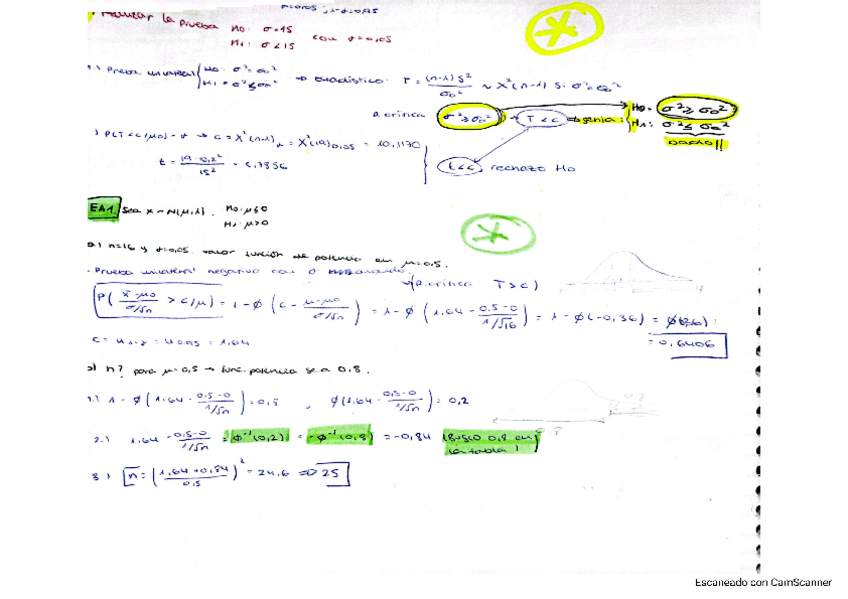 Realizar la prueba H0: σ=15 con α=0,05
H1: σ<15
1.) Prueba unilateral { H0: σ²=σ0² → Estadístico: T = (n-1)S²/σ0² ~ X²(n-1) si σ²=σ0²
R. crítica σ²≥σ0² → T<c
H0: σ²≥σ0²
H1: σ²≤σ0²
= X²(19)0,05 = 10,1170
t<c, rechazo H0
EA1. Sea X~N(μ,1). H0: μ≤0
H1: μ>0
a.) n=16 y α=0,05. valor función de potencia en μ=0,5.
· Prueba unilateral negativo con σ
(R. crítica: T>c)
P( (x̄-μ0)/(σ/√n) > c/μ ) = 1-Φ( c - (μ-μ0)/(σ/√n) ) = 1-Φ( 1,64 - (0,5-0)/(1/√16) ) = 1-Φ(-0,36) = Φ(0,36) =
= 0,6406
c = u1-α = u0,95 = 1,64
n? para μ=0,5 → func. potencia sea 0,8.
1.) 1-Φ( 1,64 - (0,5-0)/(1/√n) ) = 0,8 , Φ( 1,64 - (0,5-0)/(1/√n) ) = 0,2
2.) 1,64 - (0,5-0)/(1/√n) = Φ⁻¹(0,2) = -Φ⁻¹(0,8) = -0,84 (Busco 0,8 en
la tabla)
3.) n = ( (1,64+0,84)/0,5 )² = 24,6 ⇒ 25
Escaneado con CamScanner